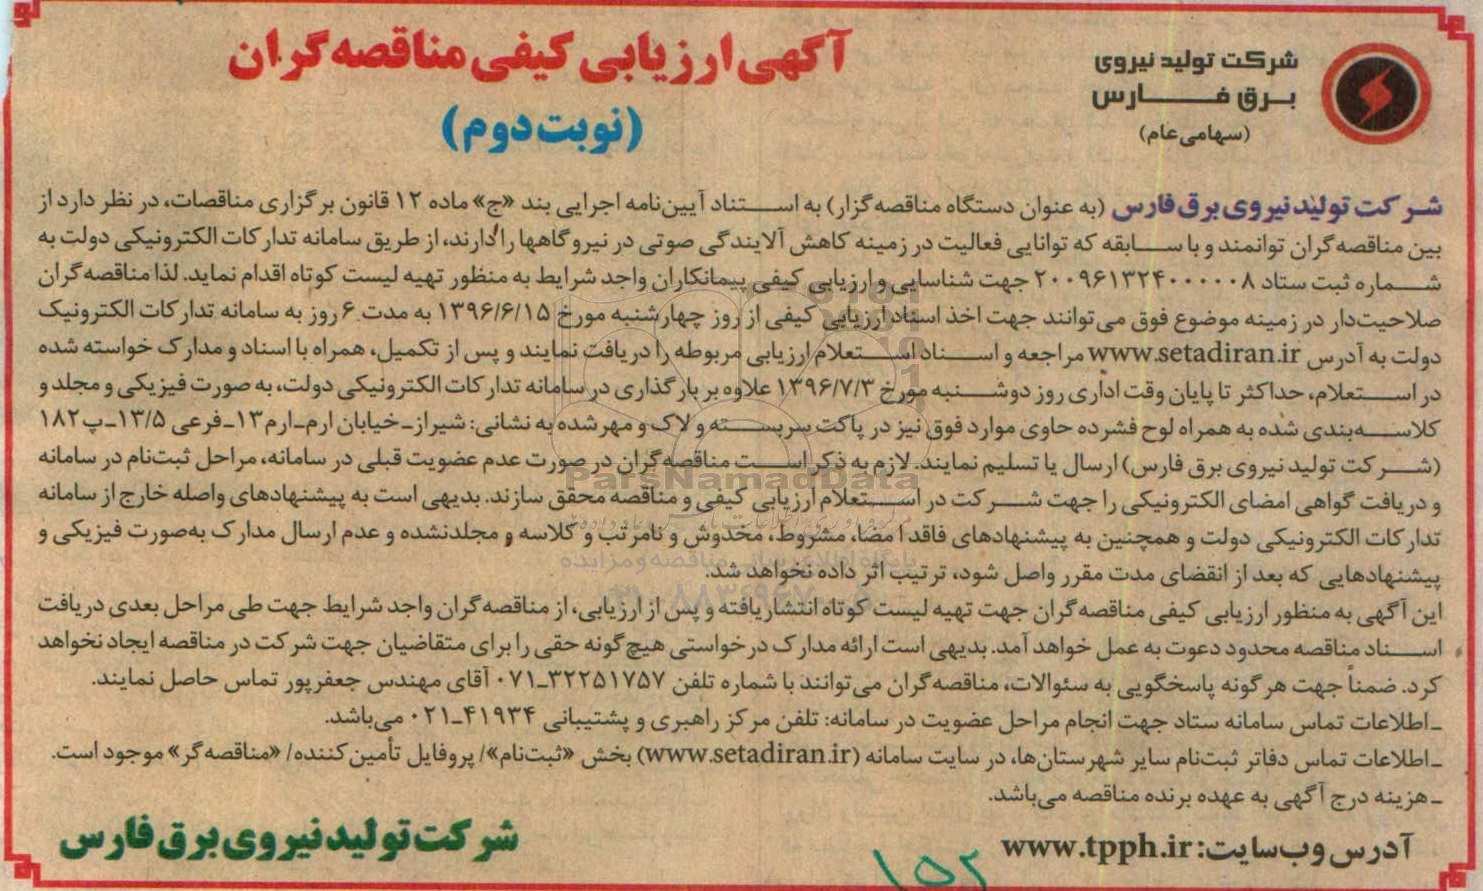 آگهی ارزیابی کیفی مناقصه گران
(نوبت دوم)
شرکت تولید نیروی
برق فارس
(سهامی عام)
شرکت تولید نیروی برق فارس (به عنوان دستگاه مناقصه گزار) به استناد آیین‌نامه اجرایی بند «ج» ماده ۱۲ قانون برگزاری مناقصات، در نظر دارد از
بین مناقصه گران توانمند و با سابقه که توانایی فعالیت در زمینه کاهش آلایندگی صوتی در نیروگاهها را دارند، از طریق سامانه تدارکات الکترونیکی دولت به
شماره ثبت ستاد ۲۰۰۹۶۱۳۲۴۰۰۰۰۰۸ جهت شناسایی و ارزیابی کیفی پیمانکاران واجد شرایط به منظور تهیه لیست کوتاه اقدام نماید. لذا مناقصه گران
صلاحیت‌دار در زمینه موضوع فوق می‌توانند جهت اخذ اسناد ارزیابی کیفی از روز چهارشنبه مورخ ۱۳۹۶/۶/۱۵ به مدت ۶ روز به سامانه تدارکات الکترونیک
دولت به آدرس www.setadiran.ir مراجعه و اسناد استعلام ارزیابی مربوطه را دریافت نمایند و پس از تکمیل، همراه با اسناد و مدارک خواسته شده
در استعلام، حداکثر تا پایان وقت اداری روز دوشنبه مورخ ۱۳۹۶/۷/۳ علاوه بر بارگذاری در سامانه تدارکات الکترونیکی دولت، به صورت فیزیکی و مجلد و
کلاسه‌بندی شده به همراه لوح فشرده حاوی موارد فوق نیز در پاکت سربسته و لاک و مهر شده به نشانی: شیراز-خیابان ارم-ارم۱۳-فرعی ۱۳/۵-پ۱۸۲
(شرکت تولید نیروی برق فارس) ارسال یا تسلیم نمایند. لازم به ذکر است مناقصه گران در صورت عدم عضویت قبلی در سامانه، مراحل ثبت‌نام در سامانه
و دریافت گواهی امضای الکترونیکی را جهت شرکت در استعلام ارزیابی کیفی و مناقصه محقق سازند. بدیهی است به پیشنهادهای واصله خارج از سامانه
تدارکات الکترونیکی دولت و همچنین به پیشنهادهای فاقد امضا، مشروط، مخدوش و نامرتب و کلاسه و مجلدنشده و عدم ارسال مدارک به‌صورت فیزیکی و
پیشنهادهایی که بعد از انقضای مدت مقرر واصل شود، ترتیب اثر داده نخواهد شد.
این آگهی به منظور ارزیابی کیفی مناقصه گران جهت تهیه لیست کوتاه انتشار یافته و پس از ارزیابی، از مناقصه گران واجد شرایط جهت طی مراحل بعدی دریافت
اسناد مناقصه محدود دعوت به عمل خواهد آمد. بدیهی است ارائه مدارک درخواستی هیچ گونه حقی را برای متقاضیان جهت شرکت در مناقصه ایجاد نخواهد
کرد. ضمناً جهت هر گونه پاسخگویی به سئوالات، مناقصه گران می‌توانند با شماره تلفن ۳۲۲۵۱۷۵۷-۰۷۱ آقای مهندس جعفرپور تماس حاصل نمایند.
-اطلاعات تماس سامانه ستاد جهت انجام مراحل عضویت در سامانه: تلفن مرکز راهبری و پشتیبانی ۴۱۹۳۴-۰۲۱ می‌باشد.
-اطلاعات تماس دفاتر ثبت‌نام سایر شهرستان‌ها، در سایت سامانه (www.setadiran.ir) بخش «ثبت‌نام»/ پروفایل تأمین کننده/ «مناقصه گر» موجود است.
- هزینه درج آگهی به عهده برنده مناقصه می‌باشد.
آدرس وب سایت: www.tpph.ir
شرکت تولید نیروی برق فارس
۱۵۲
ParsNamadData